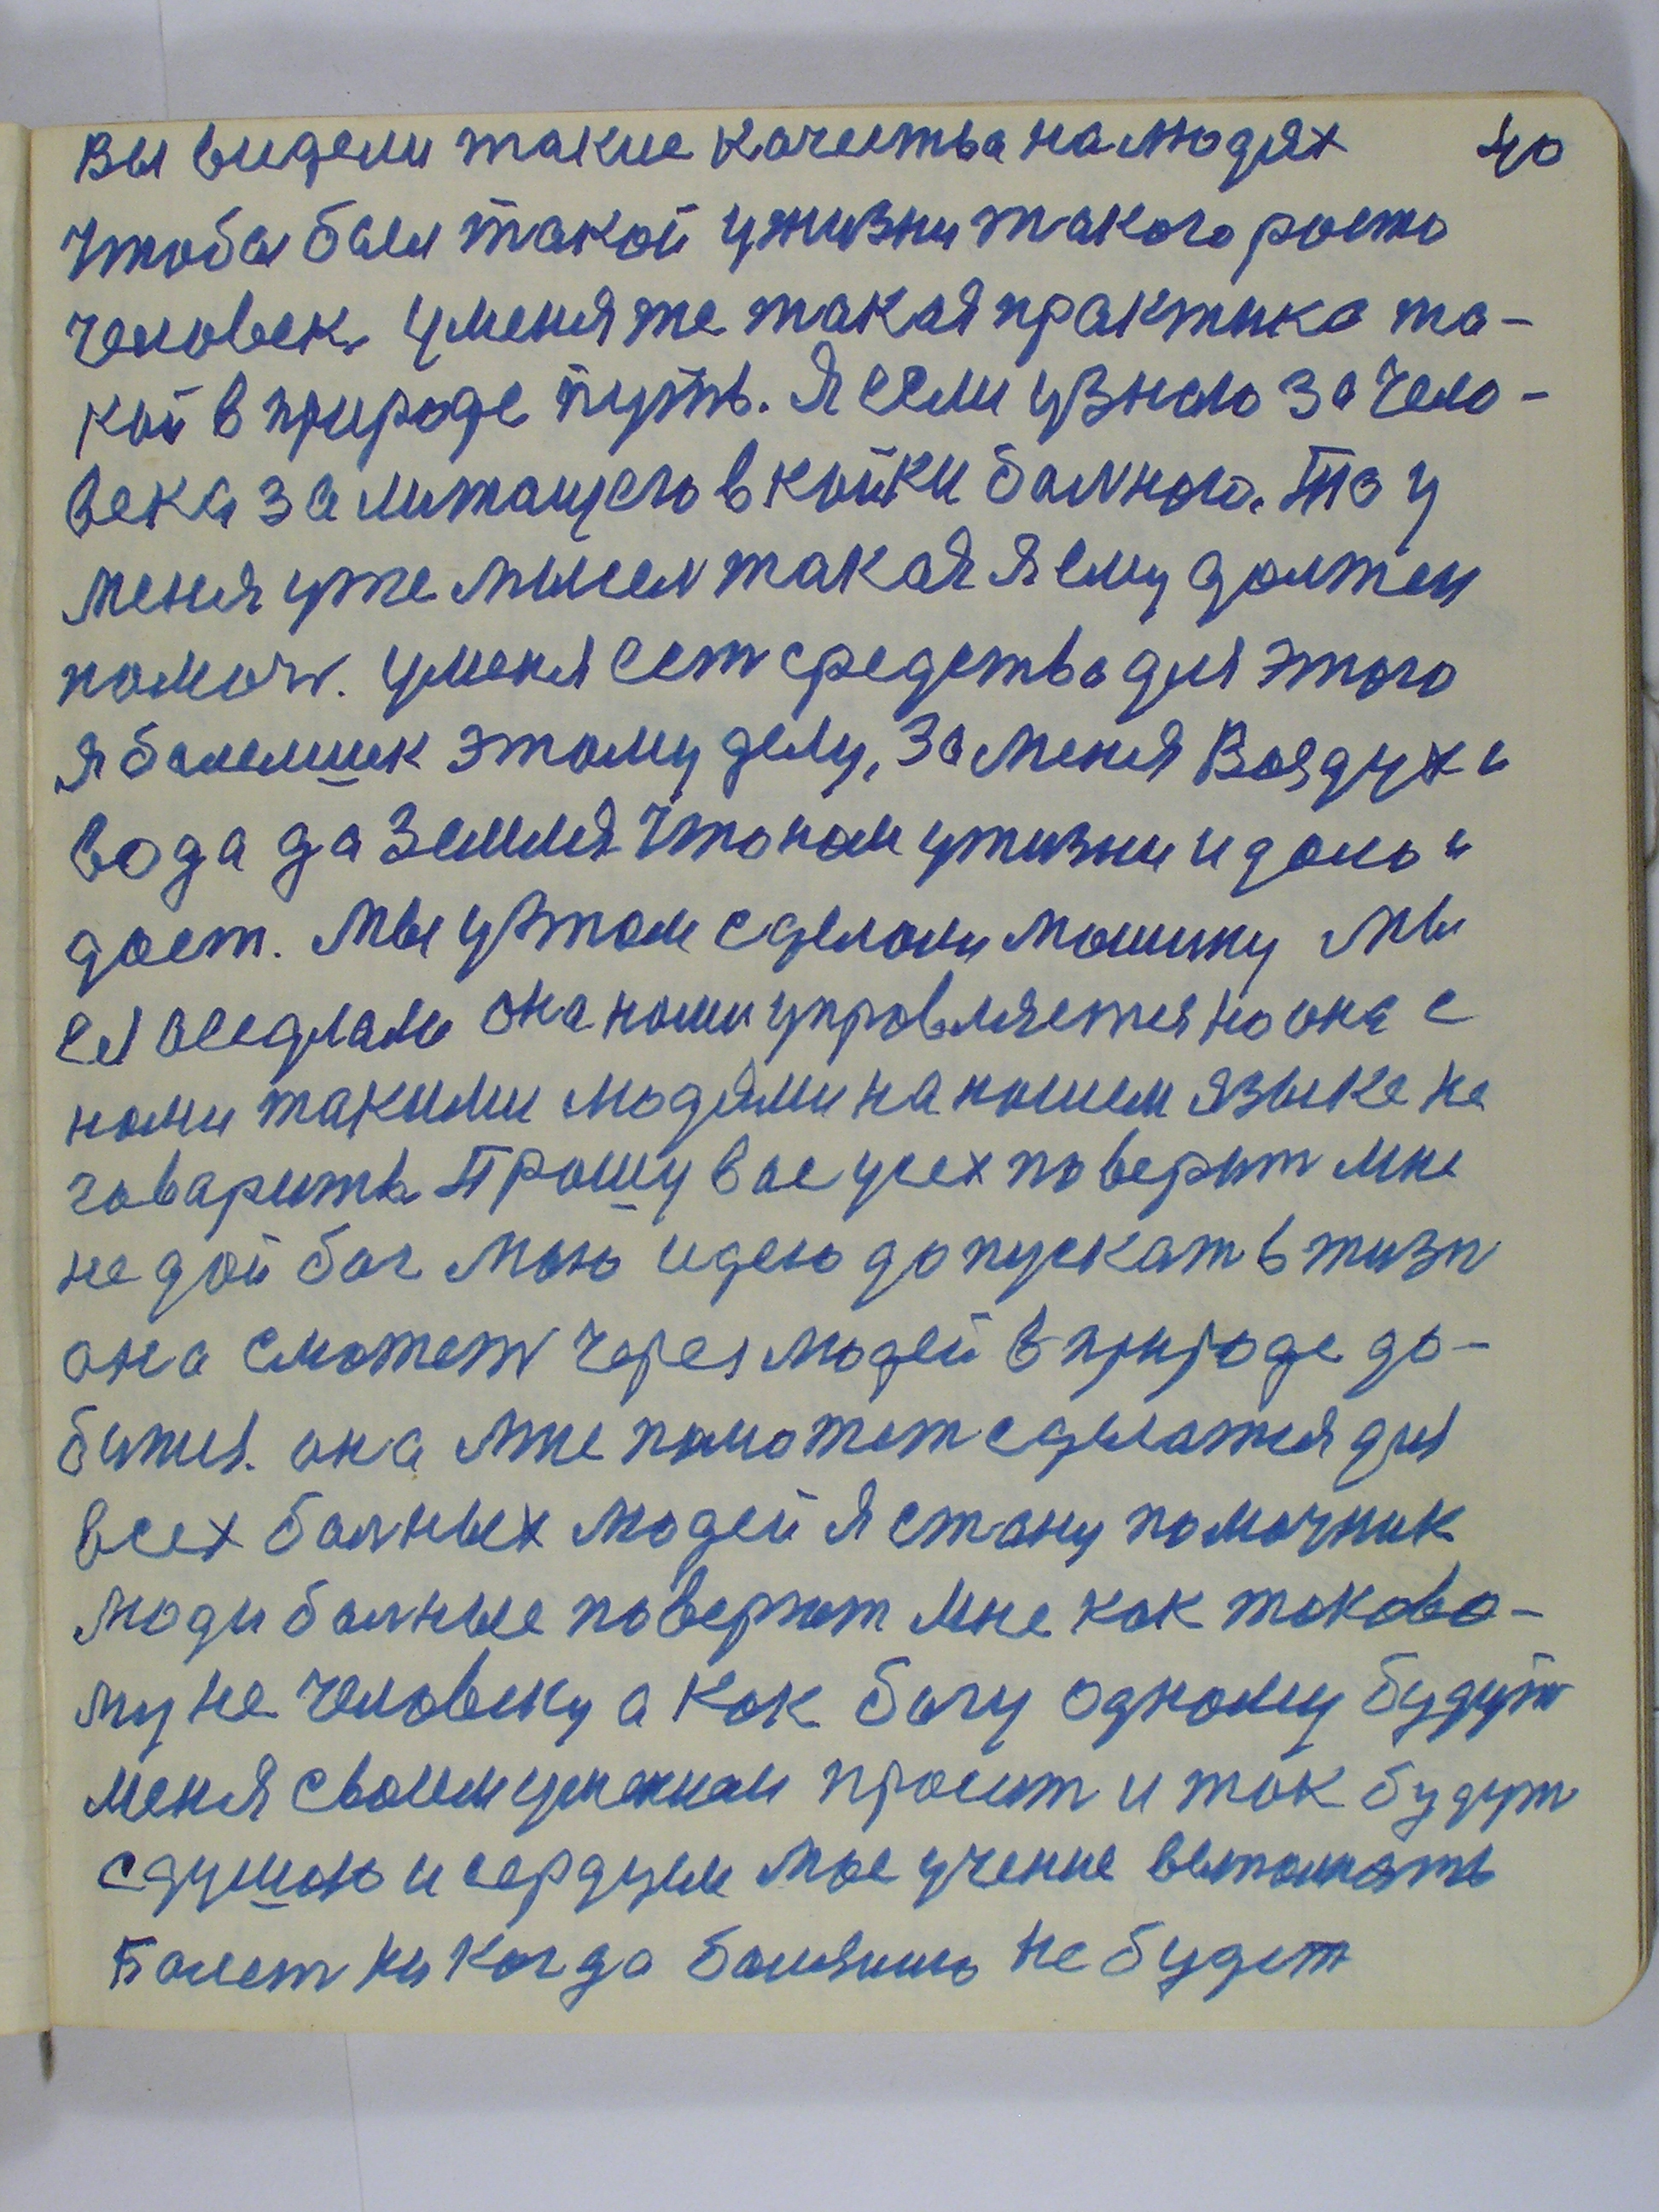 Вы видели такие качества на людях 40
чтобы был такой у жизни такого роста
человек. У меня же такая практика та-
кой в природе путь. Я если узнаю за чело-
века за лижащего в койки болного. То у
меня уже мысел такая я ему должен
помоч. У меня ест средства для этого
я болелшик этому делу, за меня Воздух и
вода да земля что нам у жизни и дало и
дает. Мы у этом сделали машину мы
ея аседлали она нами управляется но она с
нами такими людями на нашем языке не
говарить Прошу вас усех поверит мне
не дай бог мою идею допускат в жизн
она сможет через людей в природе до-
битися. она мне поможет сделатся для
всех болных людей я стану помочник
люди болные поверют мне как таково-
му не человеку а как богу одному будут
меня своим просит и так будут
с душою и сердцем мое учение выполнять
Болет никогда болялшь не будет